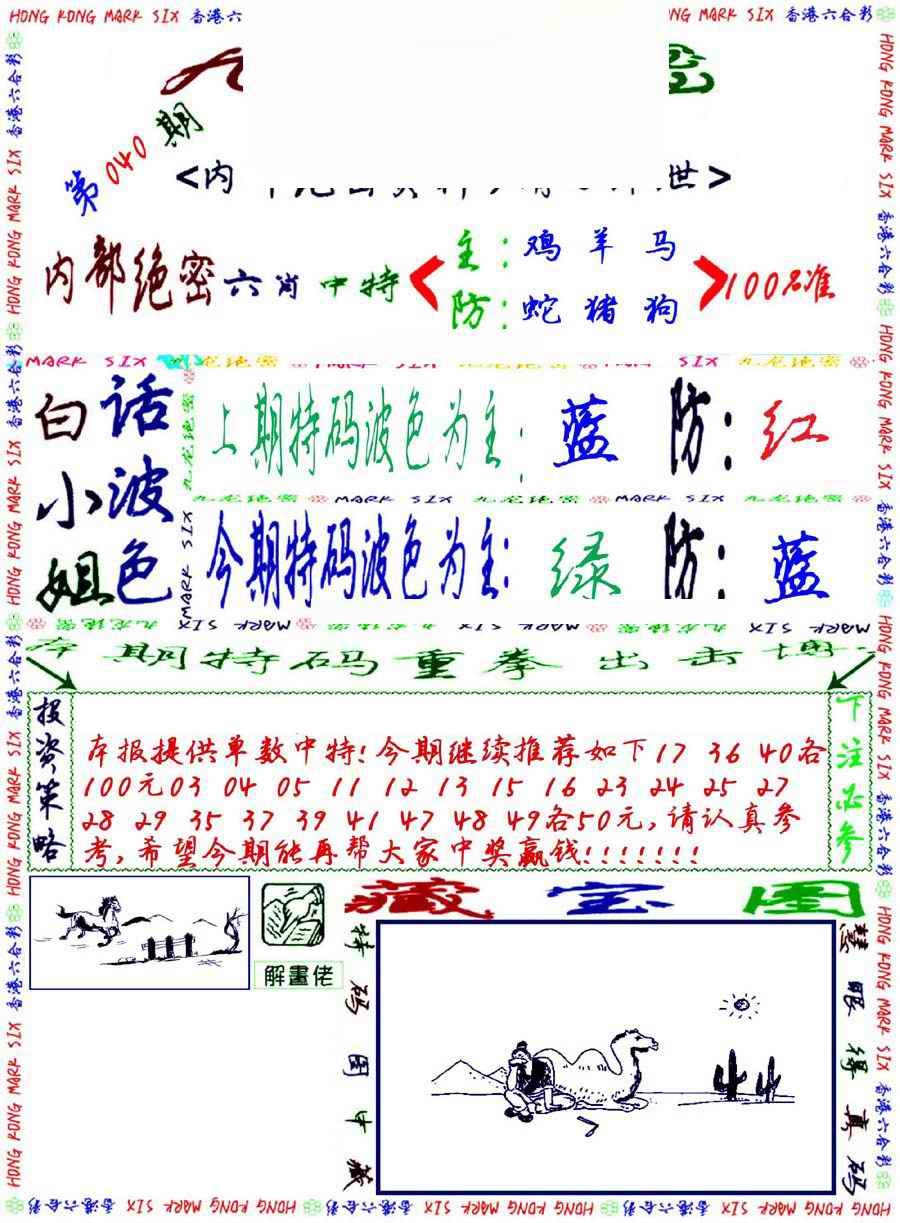 HONG KONG MARK SIX 香港六
NG MARK SIX 香港六合彩
第040期
<内
世>
内部绝密六肖中特
主:鸡羊马
防:蛇猪狗
100%准
MARK SIX 九龙绝密
白话
小波
姐色
上期特码波色为主:蓝 防:红
九龙绝密 MARK SIX 九龙绝密 MARK SIX 九龙绝密
今期特码波色为主:绿 防:蓝
本期特码重拳出击
投资策略
本报提供单数中特!今期继续推荐如下17 36 40各
100元03 04 05 11 12 13 15 16 23 24 25 27
28 29 35 37 39 41 47 48 49各50元,请认真参
考,希望今期能再帮大家中奖赢钱!!!!!!!
下注必参
解畫佬
藏宝图
特码图中藏
慧眼得真码
HONG KONG MARK SIX 香港六合彩